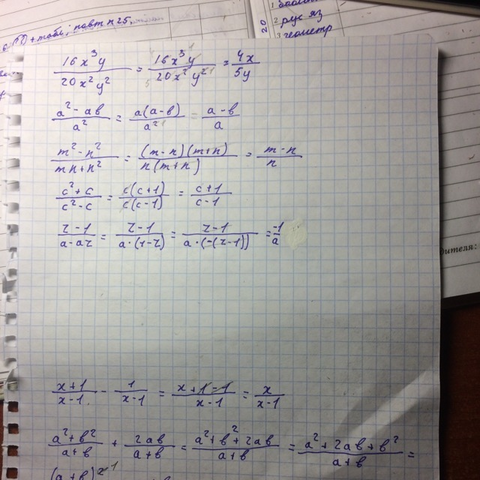 повт п 25.
2 рус яз
3 геометр
16x³y/20x²y² = 16x³y/20x²y² = 4x/5y
a²-ab/a² = a(a-b)/a² = a-b/a
m²-n²/mn+n² = (m-n)(m+n)/n(m+n) = m-n/n
c²+c/c²-c = c(c+1)/c(c-1) = c+1/c-1
z-1/a-az = z-1/a·(1-z) = z-1/a·(-(z-1)) = -1/a
дителя:
x+1/x-1 - 1/x-1 = x+1-1/x-1 = x/x-1
a²+b²/a+b + 2ab/a+b = a²+b²+2ab/a+b = a²+2ab+b²/a+b =
(a+b)²